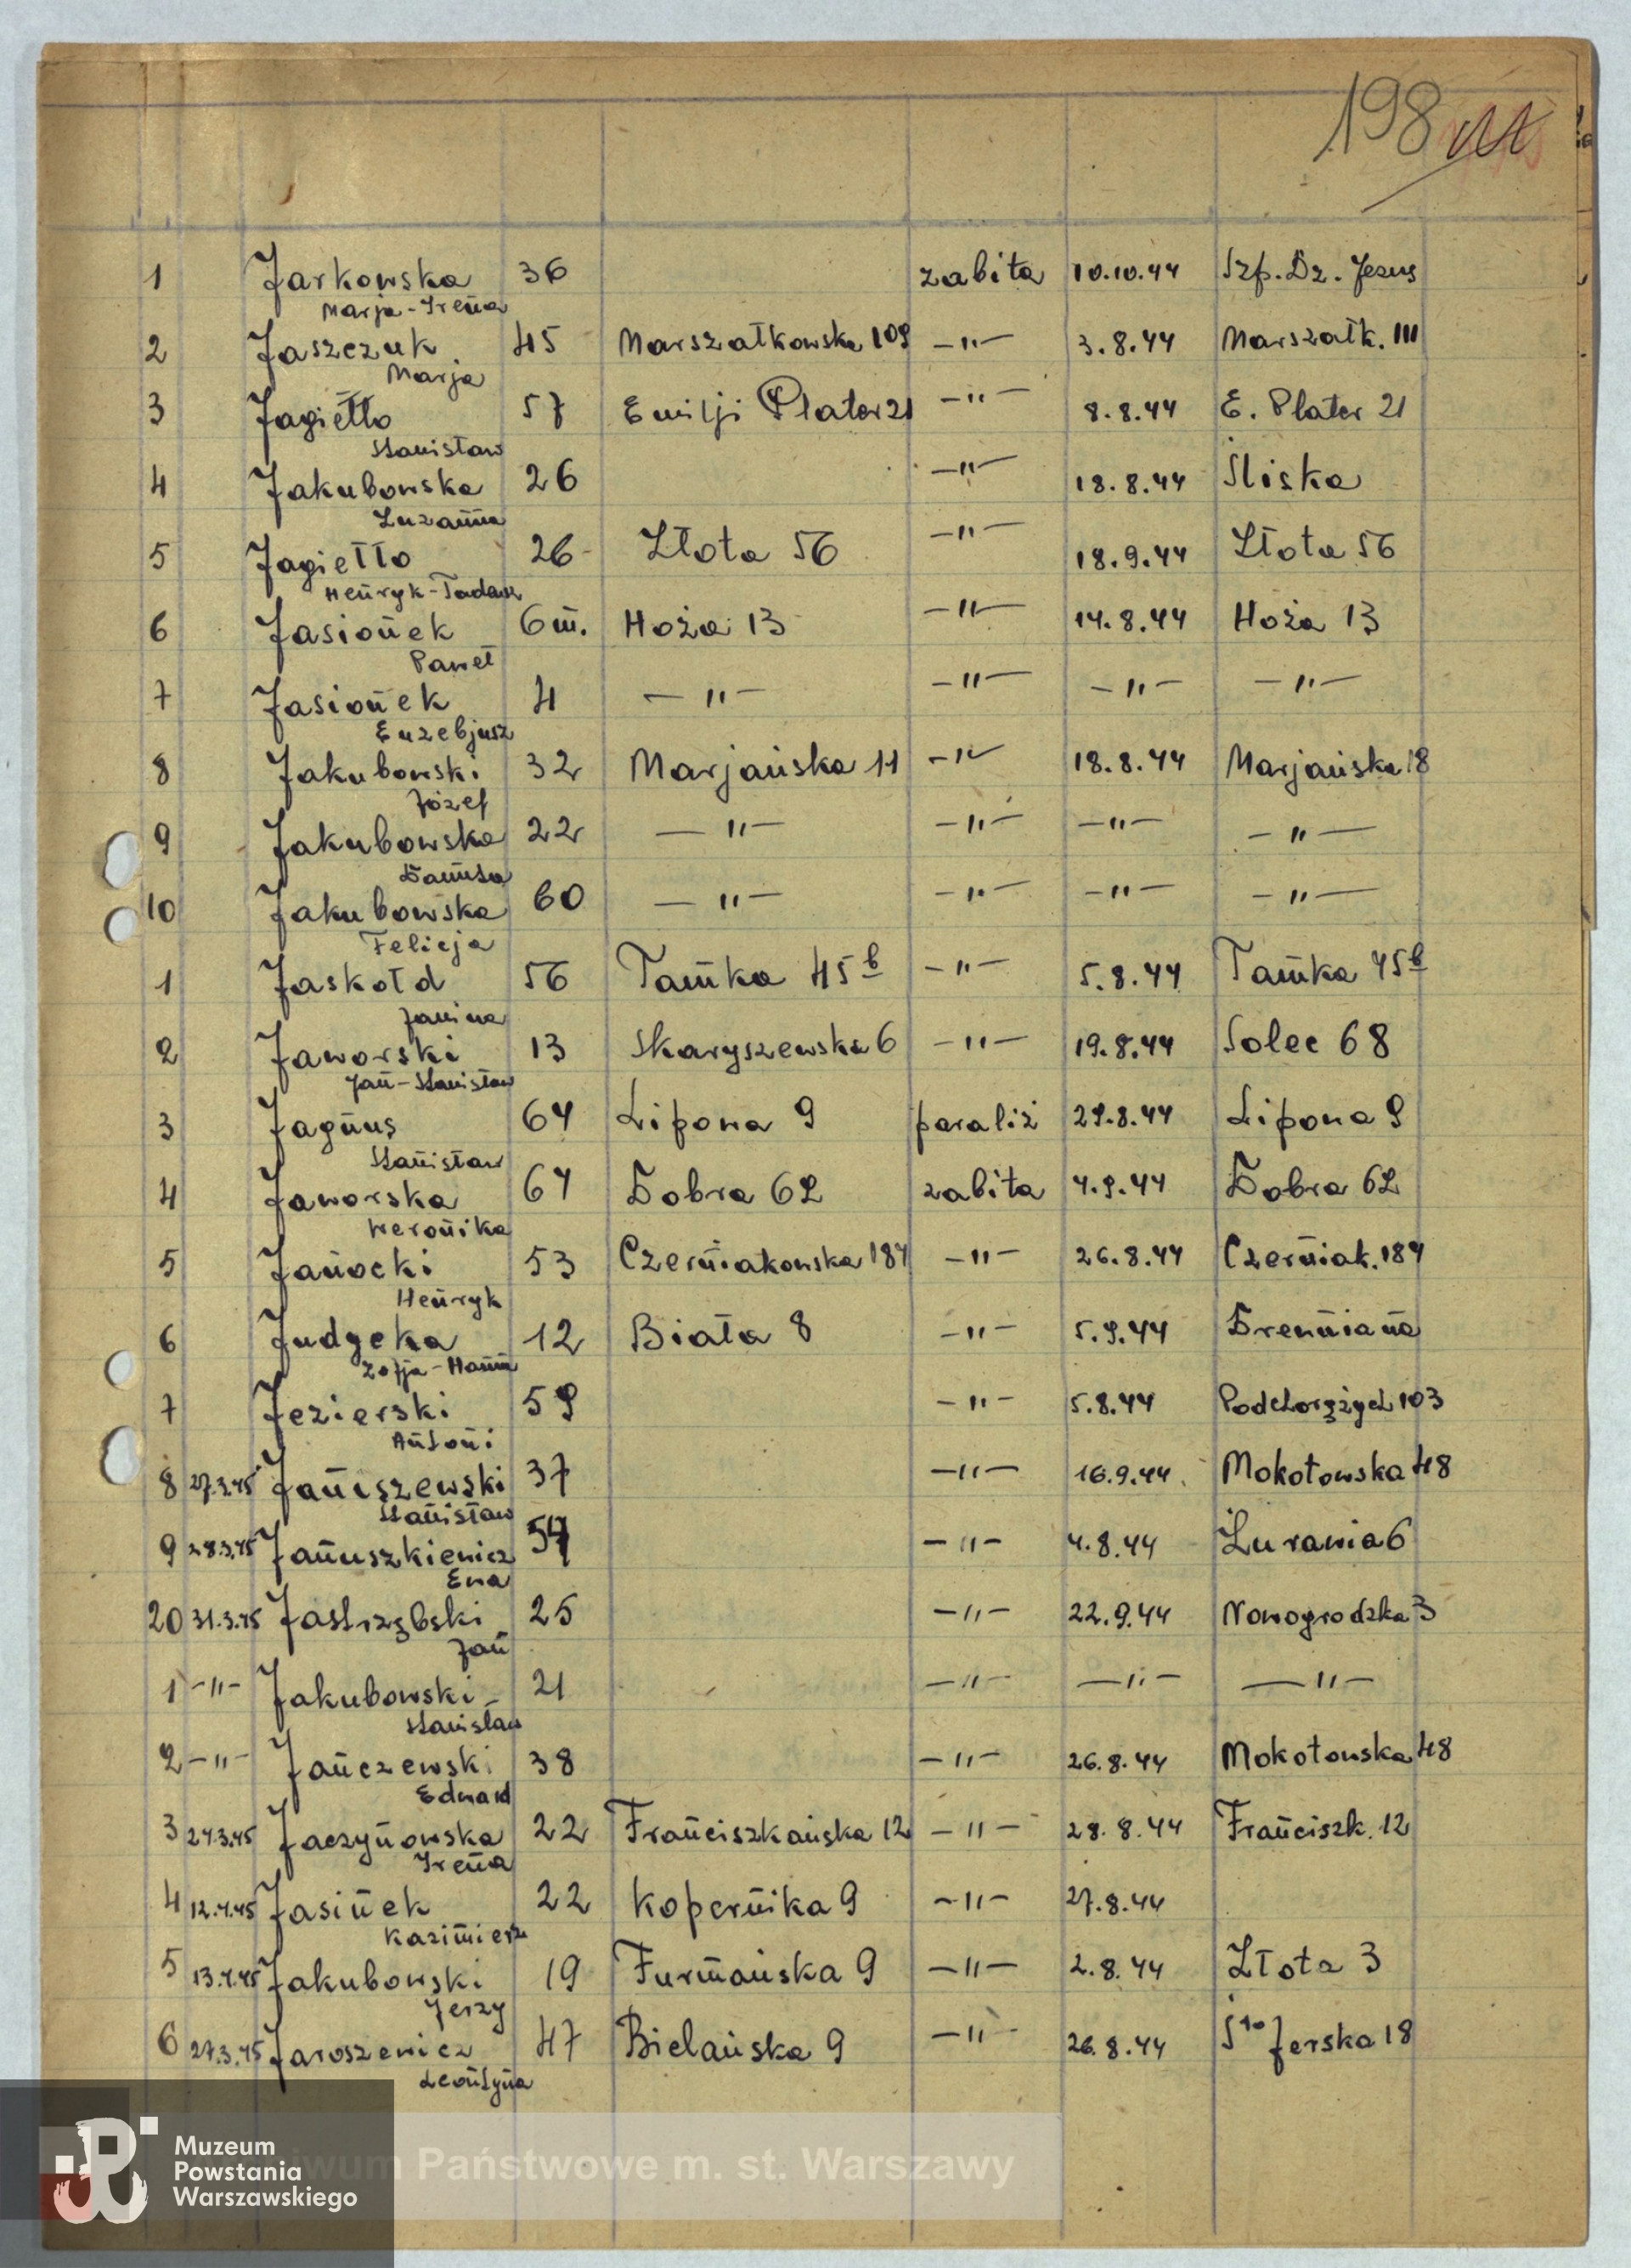 198
1 Jarkowska 36 zabita 10.10.44 Szp. Dz. Jezus
Marja-Irena
2 Jaszczuk 45 Marszałkowska 109 —"— 3.8.44 Marszałk. 111
Marja
3 Jagiełło 57 Emilji Plater 21 —"— 8.8.44 E. Plater 21
Stanisław
4 Jakubowska 26 —"— 18.8.44 Śliska
Zuzanna
5 Jagiełło 26 Złota 56 —"— 18.9.44 Złota 56
Henryk-Tadeusz
6 Jasionek 6 m. Hoża 13 —"— 14.8.44 Hoża 13
Paweł
7 Jasionek 4 —"— —"— —"— —"—
Euzebjusz
8 Jakubowski 32 Marjańska 11 —"— 18.8.44 Marjańska 18
Józef
9 Jakubowska 22 —"— —"— —"— —"—
Danuta
10 Jakubowska 60 —"— —"— —"— —"—
Felicja
1 Jaskołd 56 Tamka 45b —"— 5.8.44 Tamka 45b
Janina
2 Jaworski 13 Skaryszewska 6 —"— 19.8.44 Solec 68
Jan-Stanisław
3 Jagnus 64 Lipowa 9 paraliż 29.8.44 Lipowa 9
Stanisław
4 Jaworska 64 Dobra 62 zabita 4.9.44 Dobra 62
Weronika
5 Janocki 53 Czerniakowska 184 —"— 26.8.44 Czerniak. 184
Henryk
6 Judycka 12 Biała 8 —"— 5.9.44 Drewniana
Zofja-Hanna
7 Jezierski 59 —"— 5.8.44 Podchorążych 103
Antoni
8 27.3.45 Janiszewski 37 —"— 16.9.44 Mokotowska 48
Stanisław
9 28.3.45 Januszkiewicz 54 —"— 4.8.44 Żurawia 6
Ewa
20 31.3.45 Jastrzębski 25 —"— 22.9.44 Nowogrodzka 3
Jan
1 —"— Jakubowski 21 —"— —"— —"—
Stanisław
2 —"— Janczewski 38 —"— 26.8.44 Mokotowska 48
Edward
3 24.3.45 Jaczynowska 22 Franciszkańska 12 —"— 28.8.44 Franciszk. 12
Irena
4 12.4.45 Jasinek 22 Kopernika 9 —"— 27.8.44
Kazimierz
5 13.4.45 Jakubowski 19 Furmańska 9 —"— 2.8.44 Złota 3
Jerzy
6 27.3.45 Jaroszewicz 47 Bielańska 9 —"— 26.8.44 Ś-to Jerska 18
Leontyna
Muzeum
Powstania
Warszawskiego
wum Państwowe m. st. Warszawy